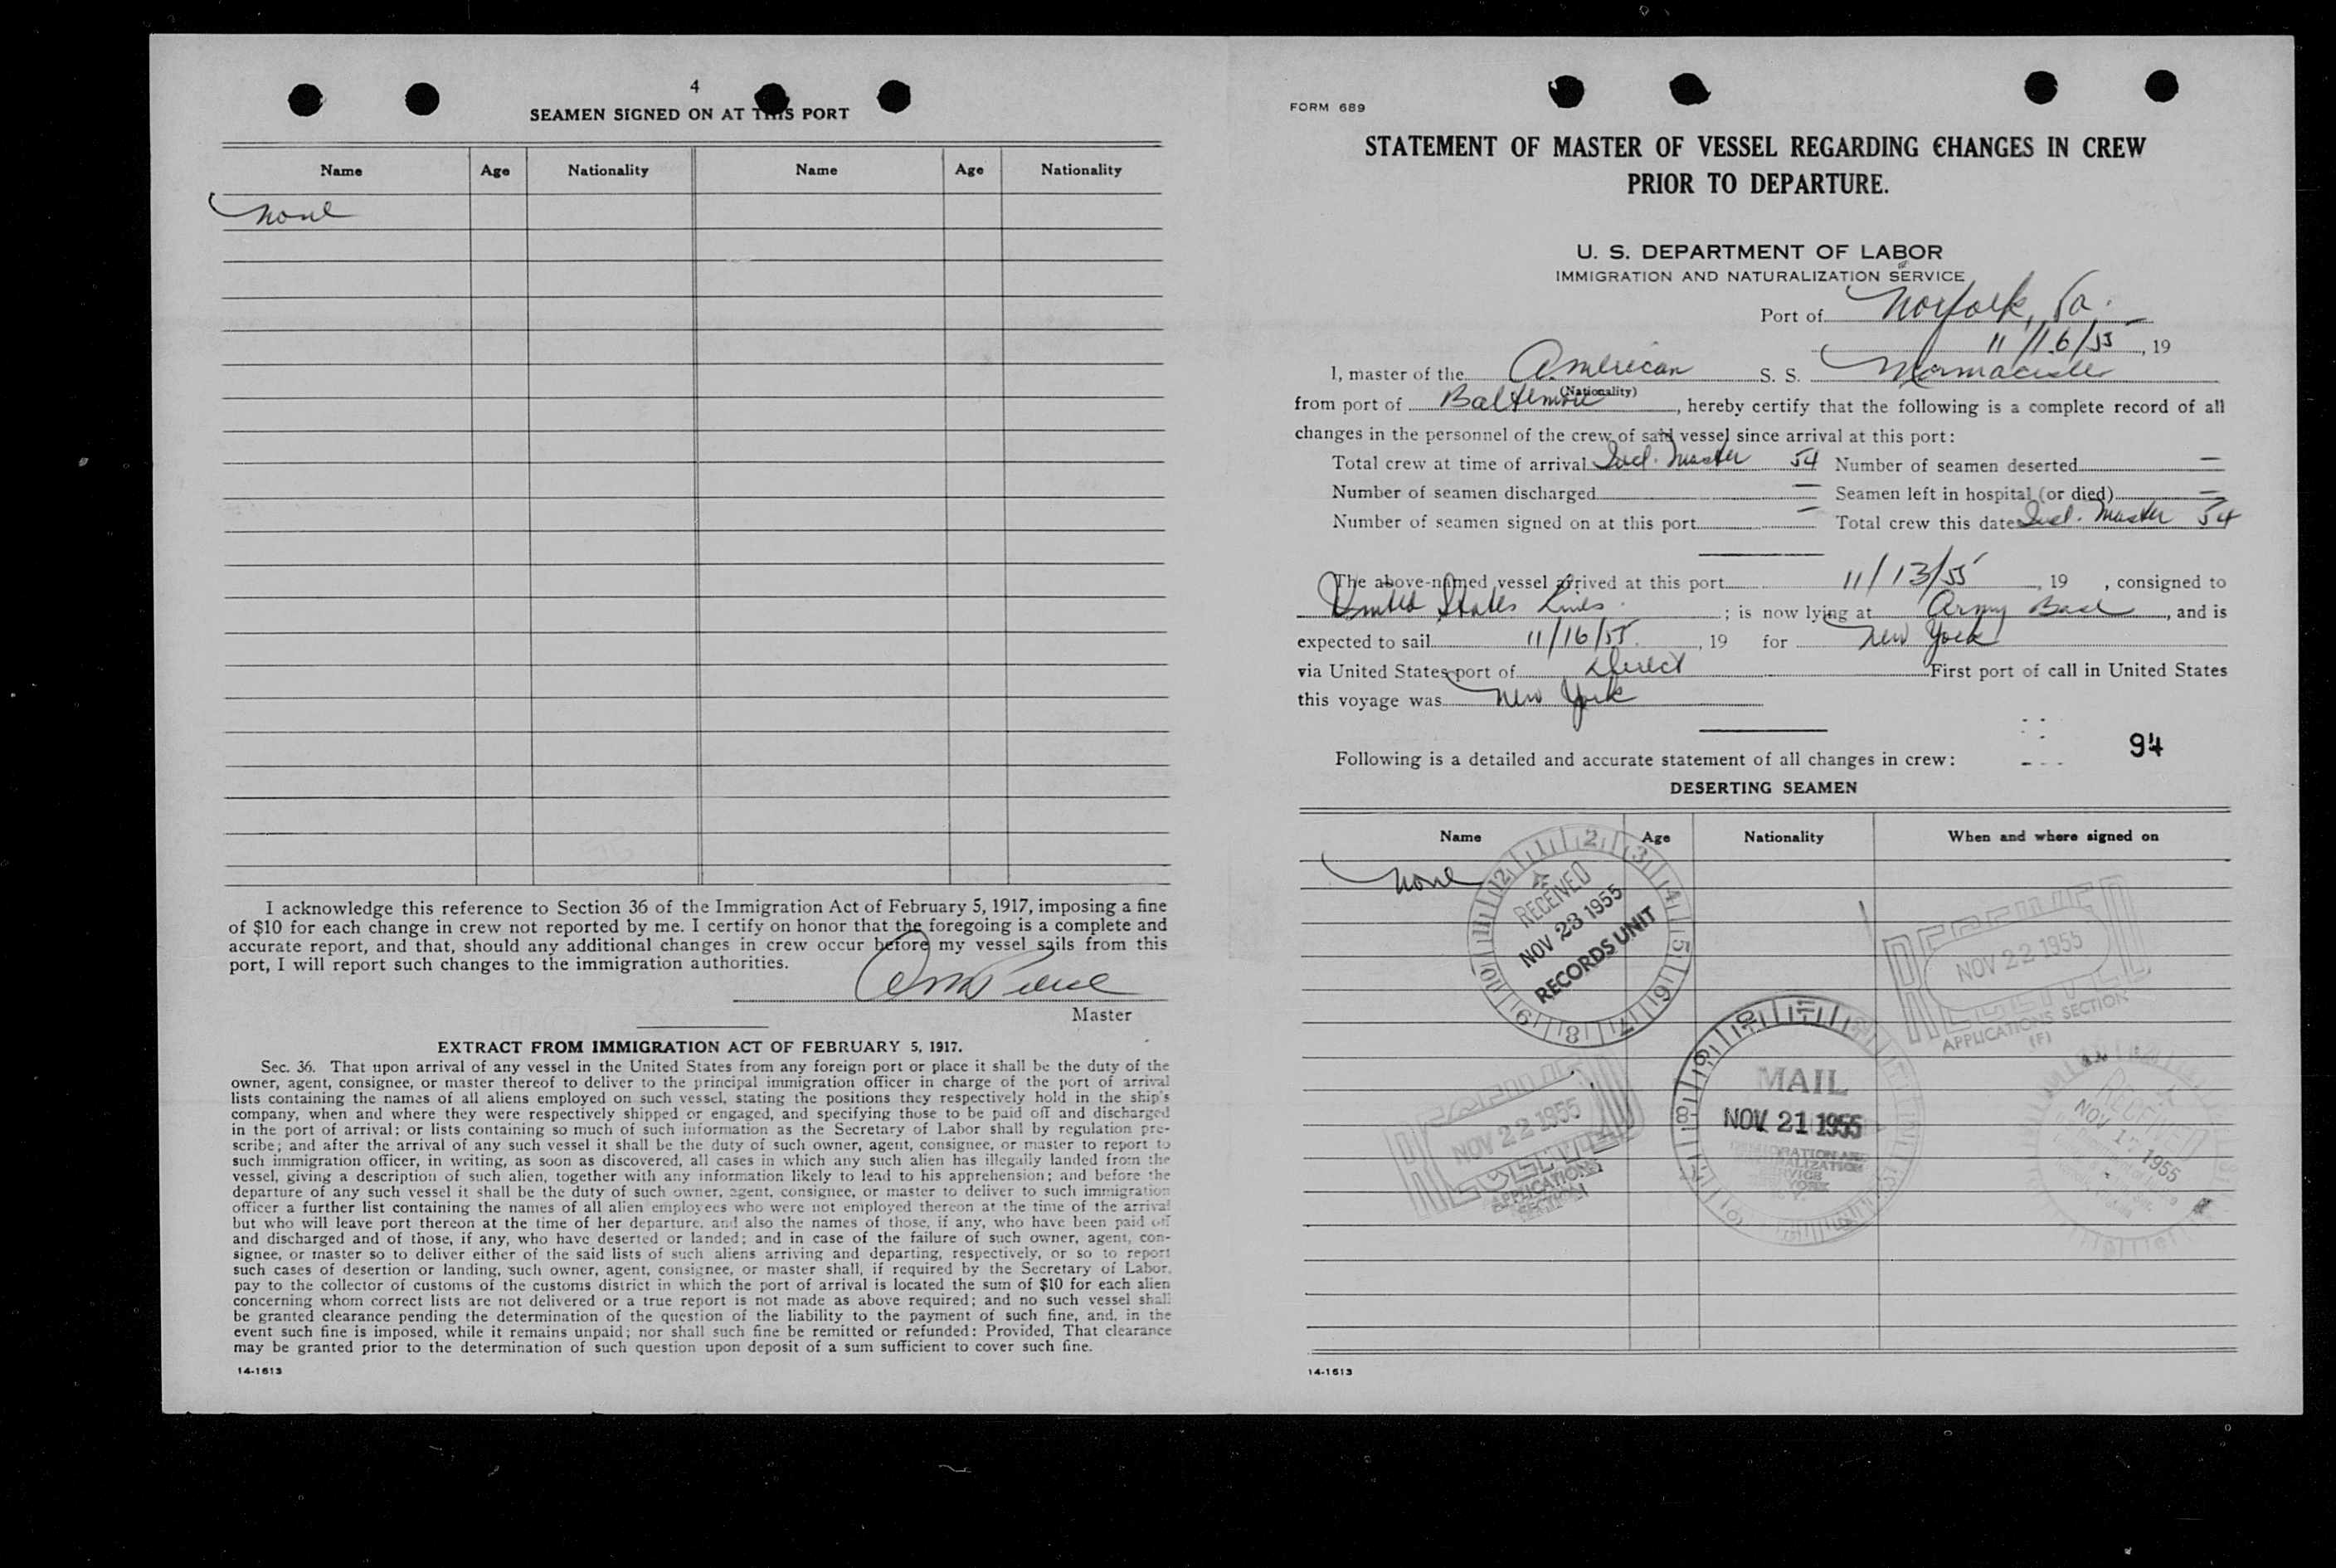 4
SEAMEN SIGNED ON AT THIS PORT
Name Age Nationality Name Age Nationality
None
I acknowledge this reference to Section 36 of the Immigration Act of February 5, 1917, imposing a fine
of $10 for each change in crew not reported by me. I certify on honor that the foregoing is a complete and
accurate report, and that, should any additional changes in crew occur before my vessel sails from this
port, I will report such changes to the immigration authorities.
Master
EXTRACT FROM IMMIGRATION ACT OF FEBRUARY 5, 1917.
Sec. 36. That upon arrival of any vessel in the United States from any foreign port or place it shall be the duty of the
owner, agent, consignee, or master thereof to deliver to the principal immigration officer in charge of the port of arrival
lists containing the names of all aliens employed on such vessel, stating the positions they respectively hold in the ship's
company, when and where they were respectively shipped or engaged, and specifying those to be paid off and discharged
in the port of arrival; or lists containing so much of such information as the Secretary of Labor shall by regulation pre-
scribe; and after the arrival of any such vessel it shall be the duty of such owner, agent, consignee, or master to report to
such immigration officer, in writing, as soon as discovered, all cases in which any such alien has illegally landed from the
vessel, giving a description of such alien, together with any information likely to lead to his apprehension; and before the
departure of any such vessel it shall be the duty of such owner, agent, consignee, or master to deliver to such immigration
officer a further list containing the names of all alien employees who were not employed thereon at the time of the arrival
but who will leave port thereon at the time of her departure, and also the names of those, if any, who have been paid off
and discharged and of those, if any, who have deserted or landed; and in case of the failure of such owner, agent, con-
signee, or master so to deliver either of the said lists of such aliens arriving and departing, respectively, or so to report
such cases of desertion or landing, such owner, agent, consignee, or master shall, if required by the Secretary of Labor,
pay to the collector of customs of the customs district in which the port of arrival is located the sum of $10 for each alien
concerning whom correct lists are not delivered or a true report is not made as above required; and no such vessel shall
be granted clearance pending the determination of the question of the liability to the payment of such fine, and, in the
event such fine is imposed, while it remains unpaid; nor shall such fine be remitted or refunded: Provided, That clearance
may be granted prior to the determination of such question upon deposit of a sum sufficient to cover such fine.
14-1613
FORM 689
STATEMENT OF MASTER OF VESSEL REGARDING CHANGES IN CREW
PRIOR TO DEPARTURE.
U. S. DEPARTMENT OF LABOR
IMMIGRATION AND NATURALIZATION SERVICE
Port of Norfolk, Va.
11/16/55, 19
I, master of the American S. S.
(Nationality)
from port of Baltimore, hereby certify that the following is a complete record of all
changes in the personnel of the crew of said vessel since arrival at this port:
Total crew at time of arrival Incl. Master 54 Number of seamen deserted —
Number of seamen discharged — Seamen left in hospital (or died) —
Number of seamen signed on at this port — Total crew this date Incl. Master 54
The above-named vessel arrived at this port 11/13/55, 19 , consigned to
United States Lines ; is now lying at Army Base, and is
expected to sail 11/16/55, 19 for New York
via United States port of Direct First port of call in United States
this voyage was New York
94
Following is a detailed and accurate statement of all changes in crew:
DESERTING SEAMEN
Name Age Nationality When and where signed on
None
RECEIVED
NOV 23 1955
RECORDS UNIT
RECEIVED
NOV 22 1955
APPLICATIONS SECTION
(F)
MAIL
NOV 21 1955
RECEIVED
NOV 22 1955
APPLICATIONS
SECTION
RECEIVED
NOV 17 1955
14-1613